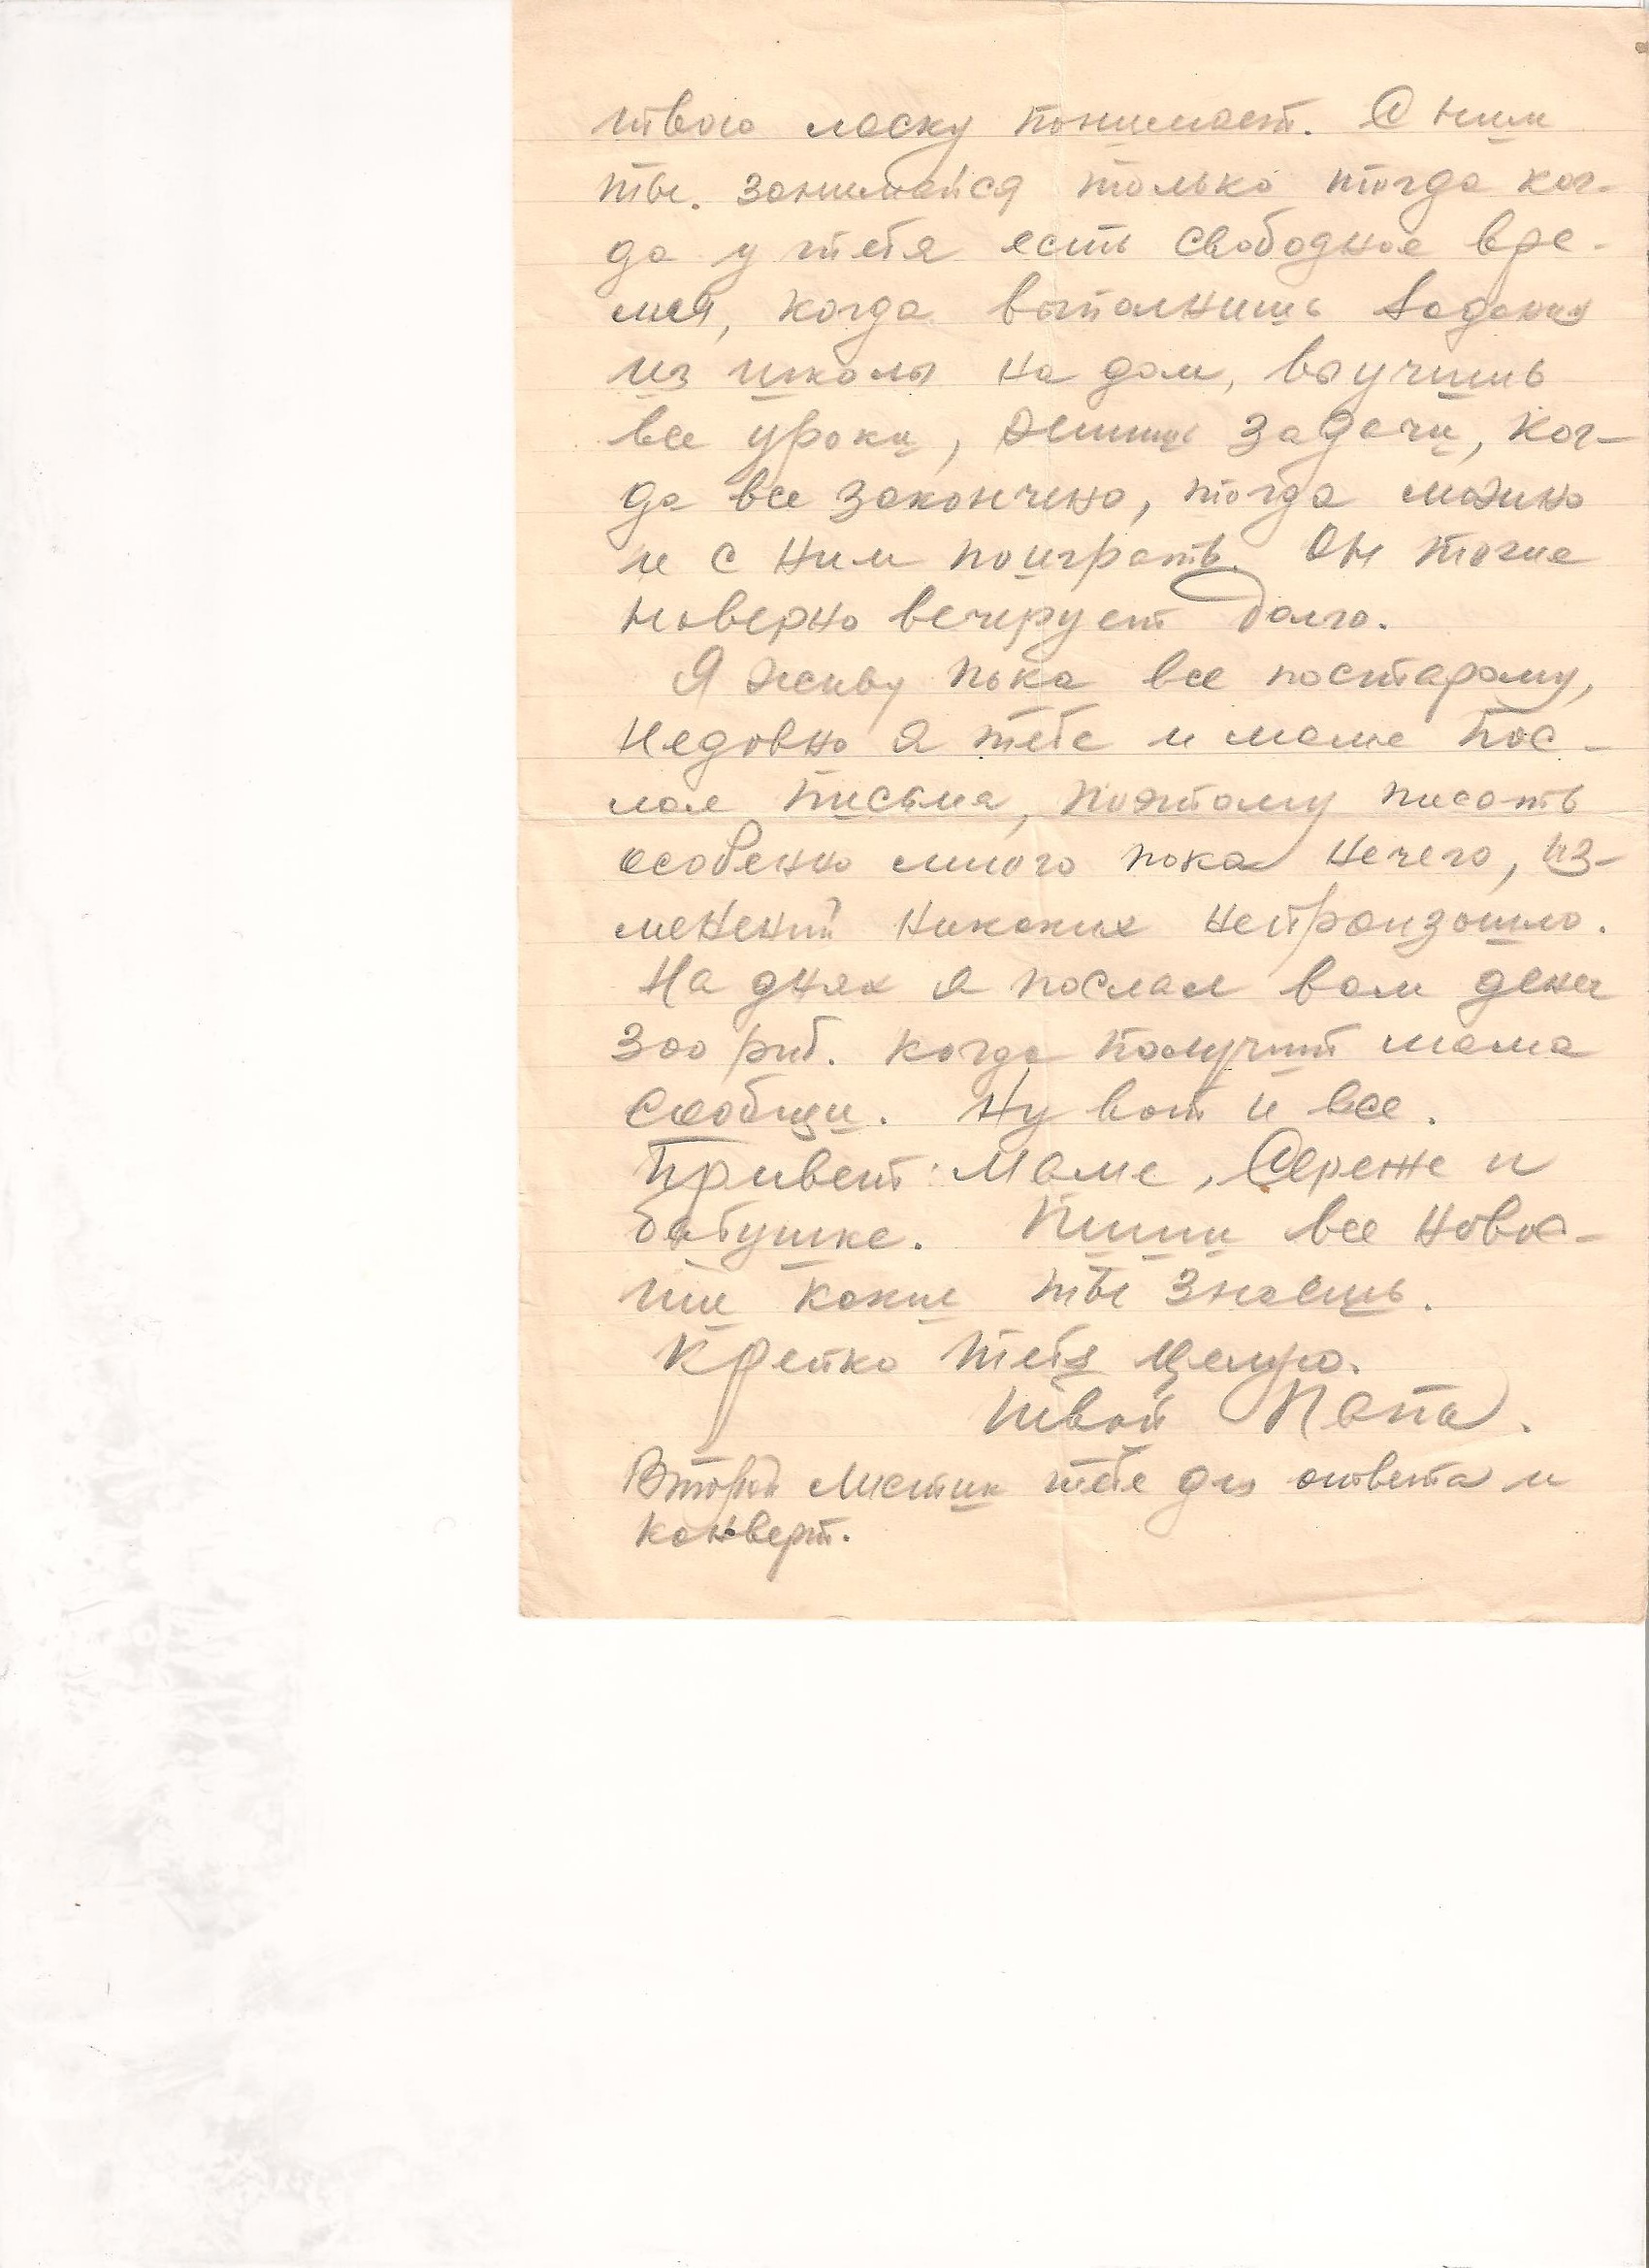 твою ласку понимает. С ним
ты. занимайся только тогда ког-
да у тебя есть свободное вре-
мя, когда выполнишь задания
из школы на дом, выучишь
все уроки, задачи, ког-
да все закончено, тогда можно
и с ним поиграть. Он тоже
наверно вечерует долго.
Я живу пока все постарому,
недавно я тебе и маме пос-
лал письма, поэтому писать
особенно много пока нечего, из-
менений никаких непроизошло.
На днях я послал вам денег
300 руб. когда получит мама
сообщи. Ну вот и все.
Привет: Маме, Сереже и
бабушке. Пиши все ново-
сти какие ты знаешь.
Крепко тебя целую.
Твой Папа.
Второй листик тебе для ответа и
конверт.